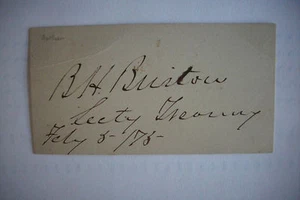 B H Bristow
Secty Treasury
Feby 5 /75